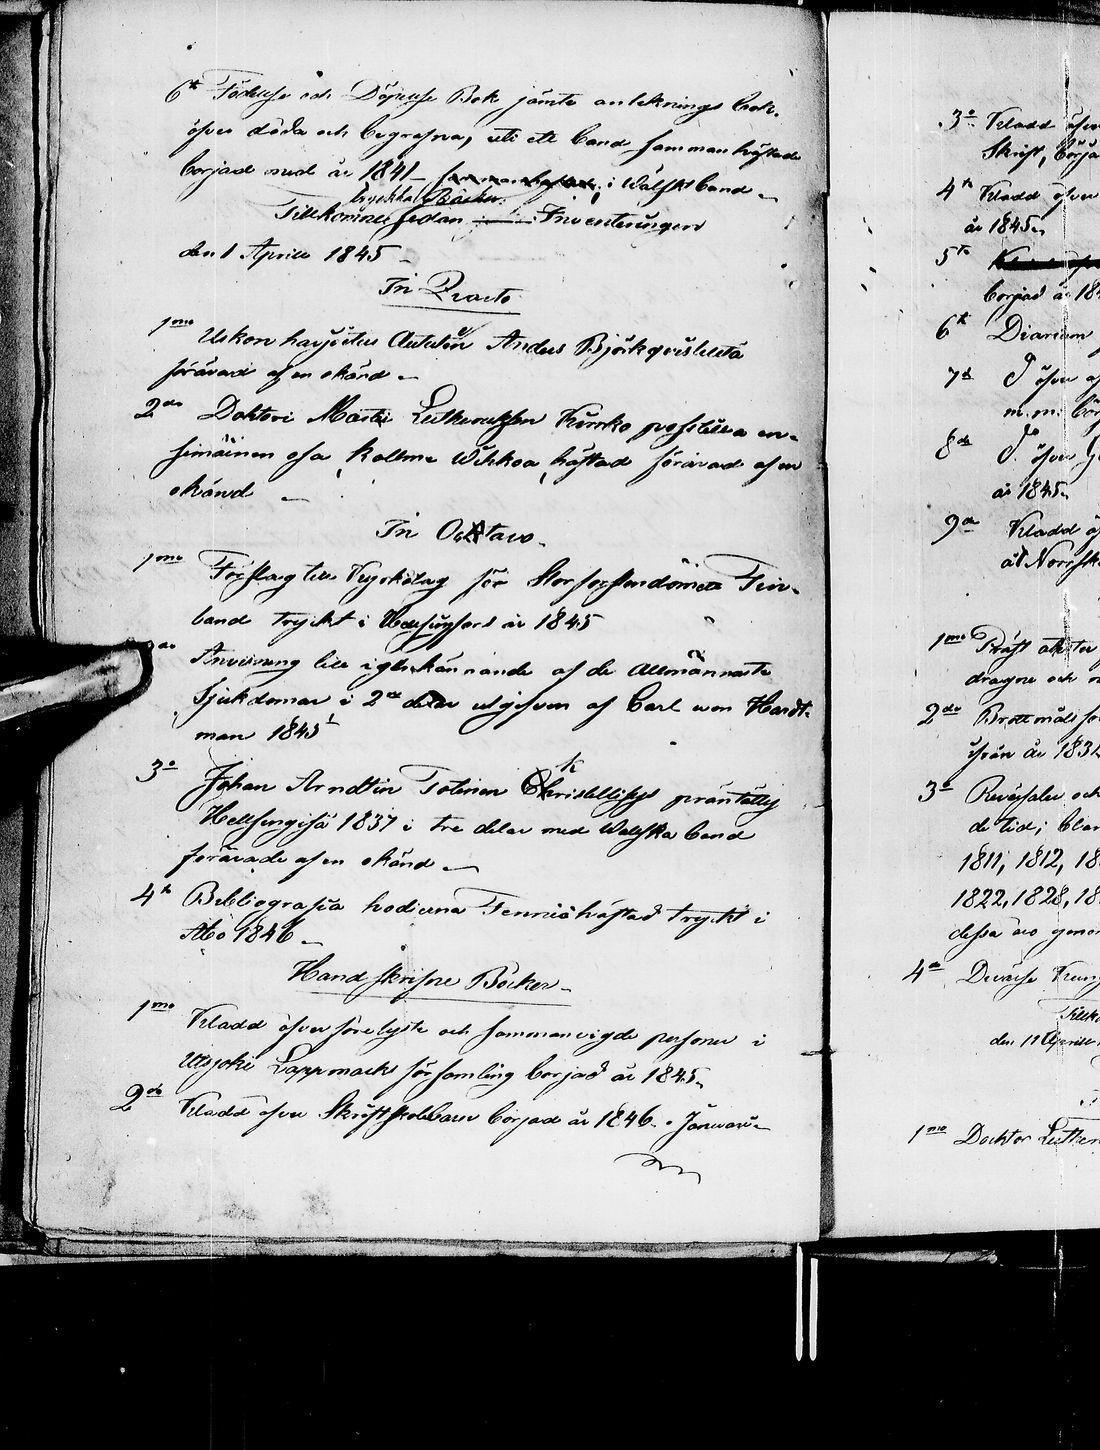 6te Födelse och Döpelse Bok jämte antecknings bok
öfver döda och begrafna, uti ett band sammanhäftade
börjad med år 1841 sammanhäftade i Wälskt band
tryckta Böcker
Tillkomne sedan Inventeringen
den 1 Aprill 1845
In Quarto
1mo Uskon harjoitus Autuuten Anders Björkqvistilda
förärad af en okänd
2do Doktori Martti Lutheruksen Kirko postilla en-
simäinen osa, kolme Wihkoa, häftad förärad af en
okänd
In Octavo
1mo Förslag till Kyrkolag för Storfurstendömet Fin-
land tryckt i Helsingfors år 1845
2do Anvisning till igenkännande af de allmännaste
Sjukdomar i 2ne delar utgifven af Carl von Hart-
man 1845
3o Johan Arndtin Totinen Kristillisys präntätty
Helsingisä 1837 i tre delar med Walska band
förärade af en okänd
4to Bibliografia hodierna Fennica häftad tryckt i
Åbo 1846
Handskrifne Böcker
1mo Kladd öfver förelyste och sammanvigde personer i
Utsjoki Lappmarks församling börjad år 1845
2do Kladd öfver Skriftskolebarn börjad år 1846. Januari
3o Kladd öfver
Skrift, börja
4to Kladd öfver
år 1845
5to
börjad år 184
6te Diarium
7de Do öfver
m.m. bör
8de Do öfver
år 1845
9de Kladd
åt Norrska
1mo
dragne och
2do Brottmåls
ifrån år 1832
3o Reversaler och
de tid; blan
1811, 1812, 18
1822, 1828, 18
dessa äro genom
4de Diverse Kung
Tillk
den 1 Aprill
1mo Docktor Luther